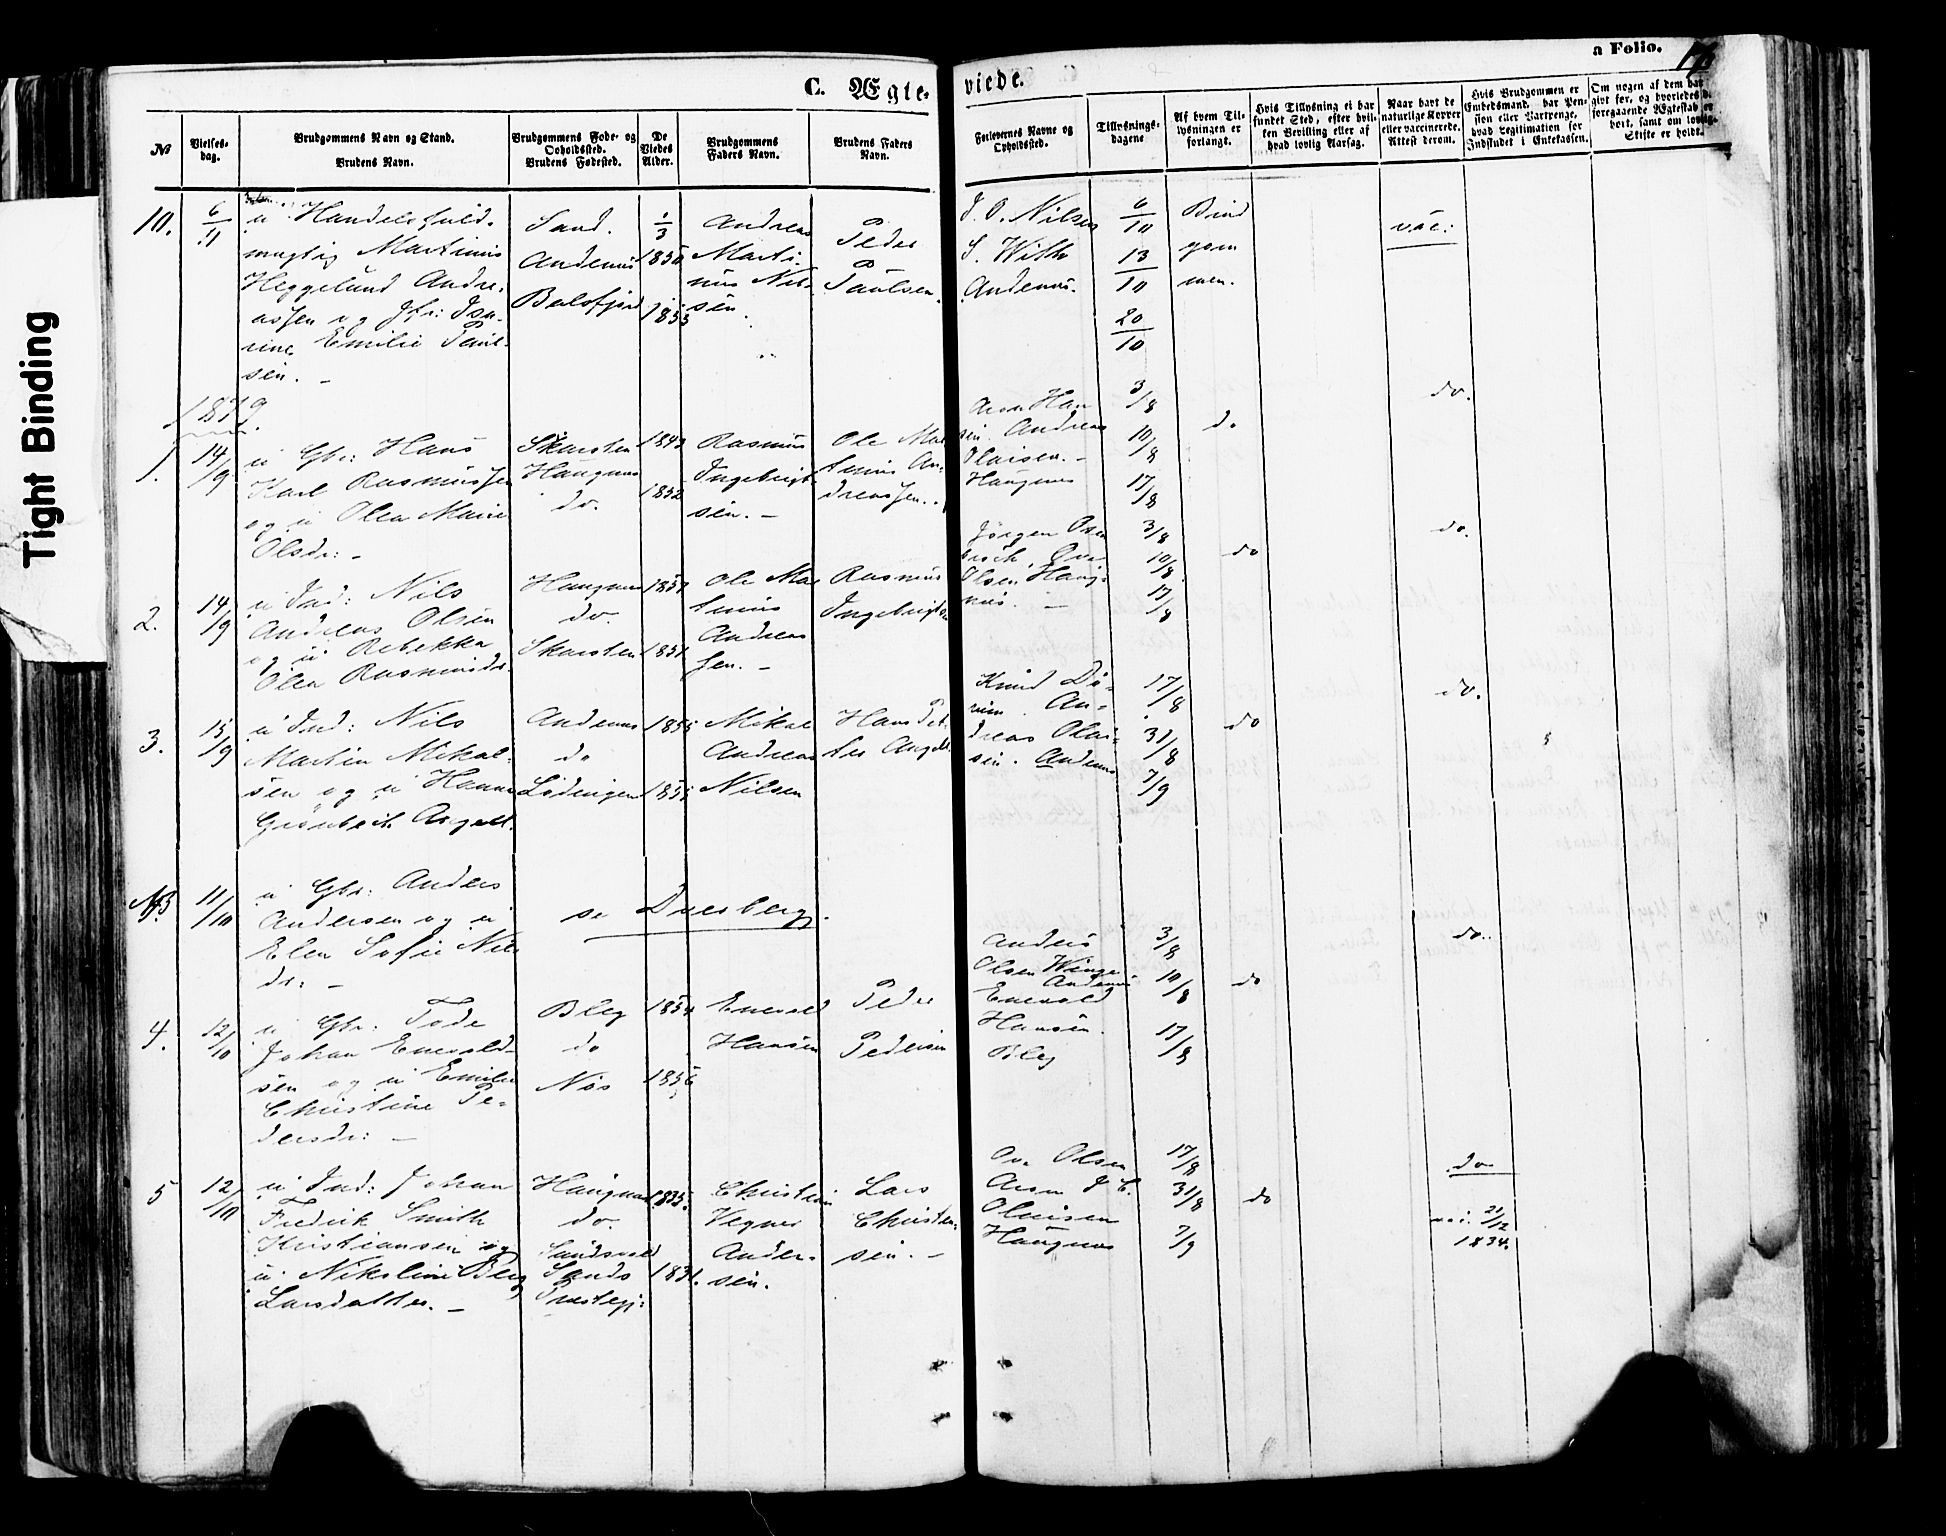 Tight Binding
C. Ægte-
viede.
a Folio.
No
Vielses-
dag.
Brudgommens Navn og Stand.
Brudens Navn.
Brudgommens Føde- og
Opholdssted.
Brudens Fødested.
De
Viedes
Alder.
Brudgommens
Faders Navn.
Brudens Faders
Navn.
Forlovernes Navne og
Opholdssted.
Tillysnings-
dagene
Af hvem Til-
lysningen er
forlangt.
Hvis Tillysning ei har
fundet Sted, efter hvil-
ken Bevilling eller af
hvad lovlig Aarsag.
Naar havt de
naturlige Kopper
eller vaccinerede.
Attest derom.
Hvis Brudgommen er
Embedsmand, har Pen-
sion eller Vartpenge,
hvad Legitimation for
Indskudet i Enkekassen.
Om nogen af dem har
givt før, og hvorledes d.
foregaaende Ægteskab er
hævt, samt om lovlig
Skifte er holdt.
10.
6/11
u Handelsfuld-
mægtig Martinus
Heggelund Andre-
assen og Jfr:
Emilie Paul-
sen. -
Sand.
Andenæs
Balsfjord
1/3
1850
1853
Andreas
Marti-
nus Nil-
sen.
Peder
Paulsen.
J. O. Nilsen
S. With
Andenæs.
6/10
13/10
20/10
Brud
gom
men.
vac:
1879.
1.
14/9
u Gbr: Hans
Karl Rasmussen
og u Olea Marie
Olsdr: -
Skarsten
Haugnæs
do.
1843
1852
Rasmus
Ingebrigt-
sen. -
Ole Mar
tinus An-
dreassen.
Aron Han
sen. Andreas
Olaisen. -
Haugnes
3/8
10/8
17/8
do
do.
2.
14/9
u Ind: Nils
Andreas Olsen
og u Rebekka
Olea Rasmusdr.
Haugnæs
do.
Skarsten
1857
1851
Ole Mar
tinus
Andreas
sen. -
Rasmus
Ingebrigtsen
Jørgen
Ove
Olsen Haug-
næs. -
3/8
10/8
17/8
do
do.
3.
15/9
u Ind: Nils
Martin Mikal-
sen og u Hanna
Grønbech Angell.
Andenæs
do
Lødingen
1855
1855
Mikal
Andreas
Nilsen
Hans Pet-
ter Angell
Knud Dø-
An-
dreas Olai-
sen. Andenæs
17/8
31/8
7/9
do
do.
NB
11/10
u Gbr: Anders
Andersen og u
Elen Sofie Nils
dr: -
se Dverberg.
4.
12/10
u Gbr: Tode
Johan Enevold-
sen og u Emilie
Christine Pe-
dersdr: -
Bleg
do
Nøs
1854
1856
Enevold
Hansen
Peder
Pedersen
Anders
Olsen Winge
Andenæs
Enevold
Hansen.
Bleg
3/8
10/8
17/8
do
do.
5
12/10
u Ind: Johan
Fredrik Smith
Kristiansen og
u Nikoline Berg
Larsdatter. -
Haugnæs
do.
Sandsvold
Sands
Præstegj:
1835
1831.
Christian
Vegner
Ander-
sen.
Lars
Christen-
sen. -
Ove Olsen
Aron J. C.
Olaisen
Haugnæs
17/8
31/8
7/9
do
do
vac. 21/12
1834.